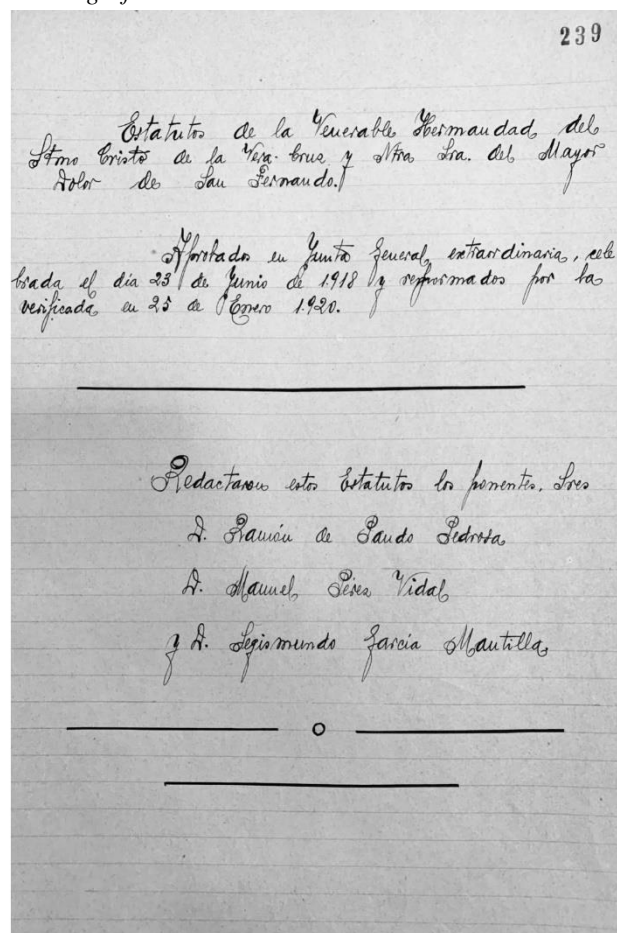 239
Estatutos de la Venerable Hermandad del
Stmo Cristo de la Vera-Cruz y Ntra Sra. del Mayor
Dolor de San Fernando.
Aprobados en Junta General, extraordinaria, cele
brada el día 23 de Junio de 1918 y reformados por la
verificada en 25 de Enero 1.920.
Redactaron estos Estatutos los ponentes. Sres
D. Ramón de Pando Pedrosa
D. Manuel Pérez Vidal
y D. Segismundo García Mantilla